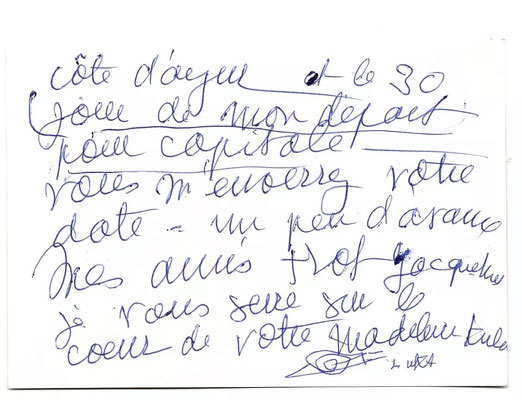 côte d'azur et le 30
jour de mon départ
pour capitale
vous m'enverrez votre
date - un peu d'avance
mes amis Jacqueline
je vous serre sur le
coeur de votre Madeleine